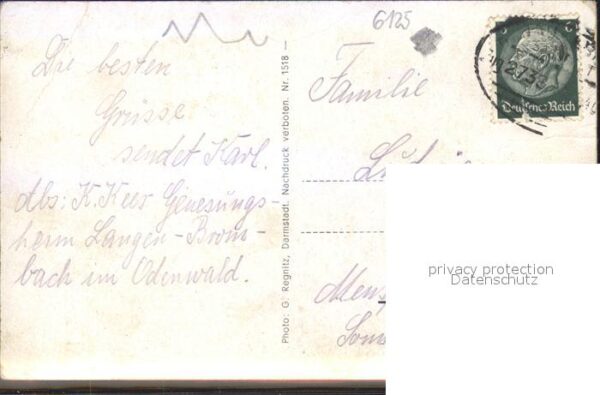 6125
Die besten
Grüsse
sendet Karl.
Abs: K. Keer Genesungs-
heim Langen-Brom-
bach im Odenwald.
Photo: G. Regnitz, Darmstadt. Nachdruck verboten. Nr. 1518 —
Familie
6
Deutsches Reich
privacy protection
Datenschutz